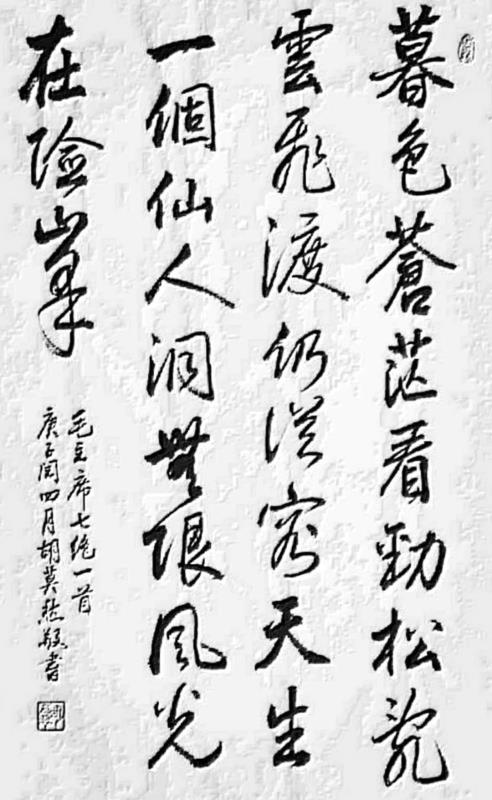 暮色蒼茫看勁松亂
雲飛渡仍從容天生
一個仙人洞無限風光
在險峯
毛主席七绝一首
庚子闰四月胡莫敬書